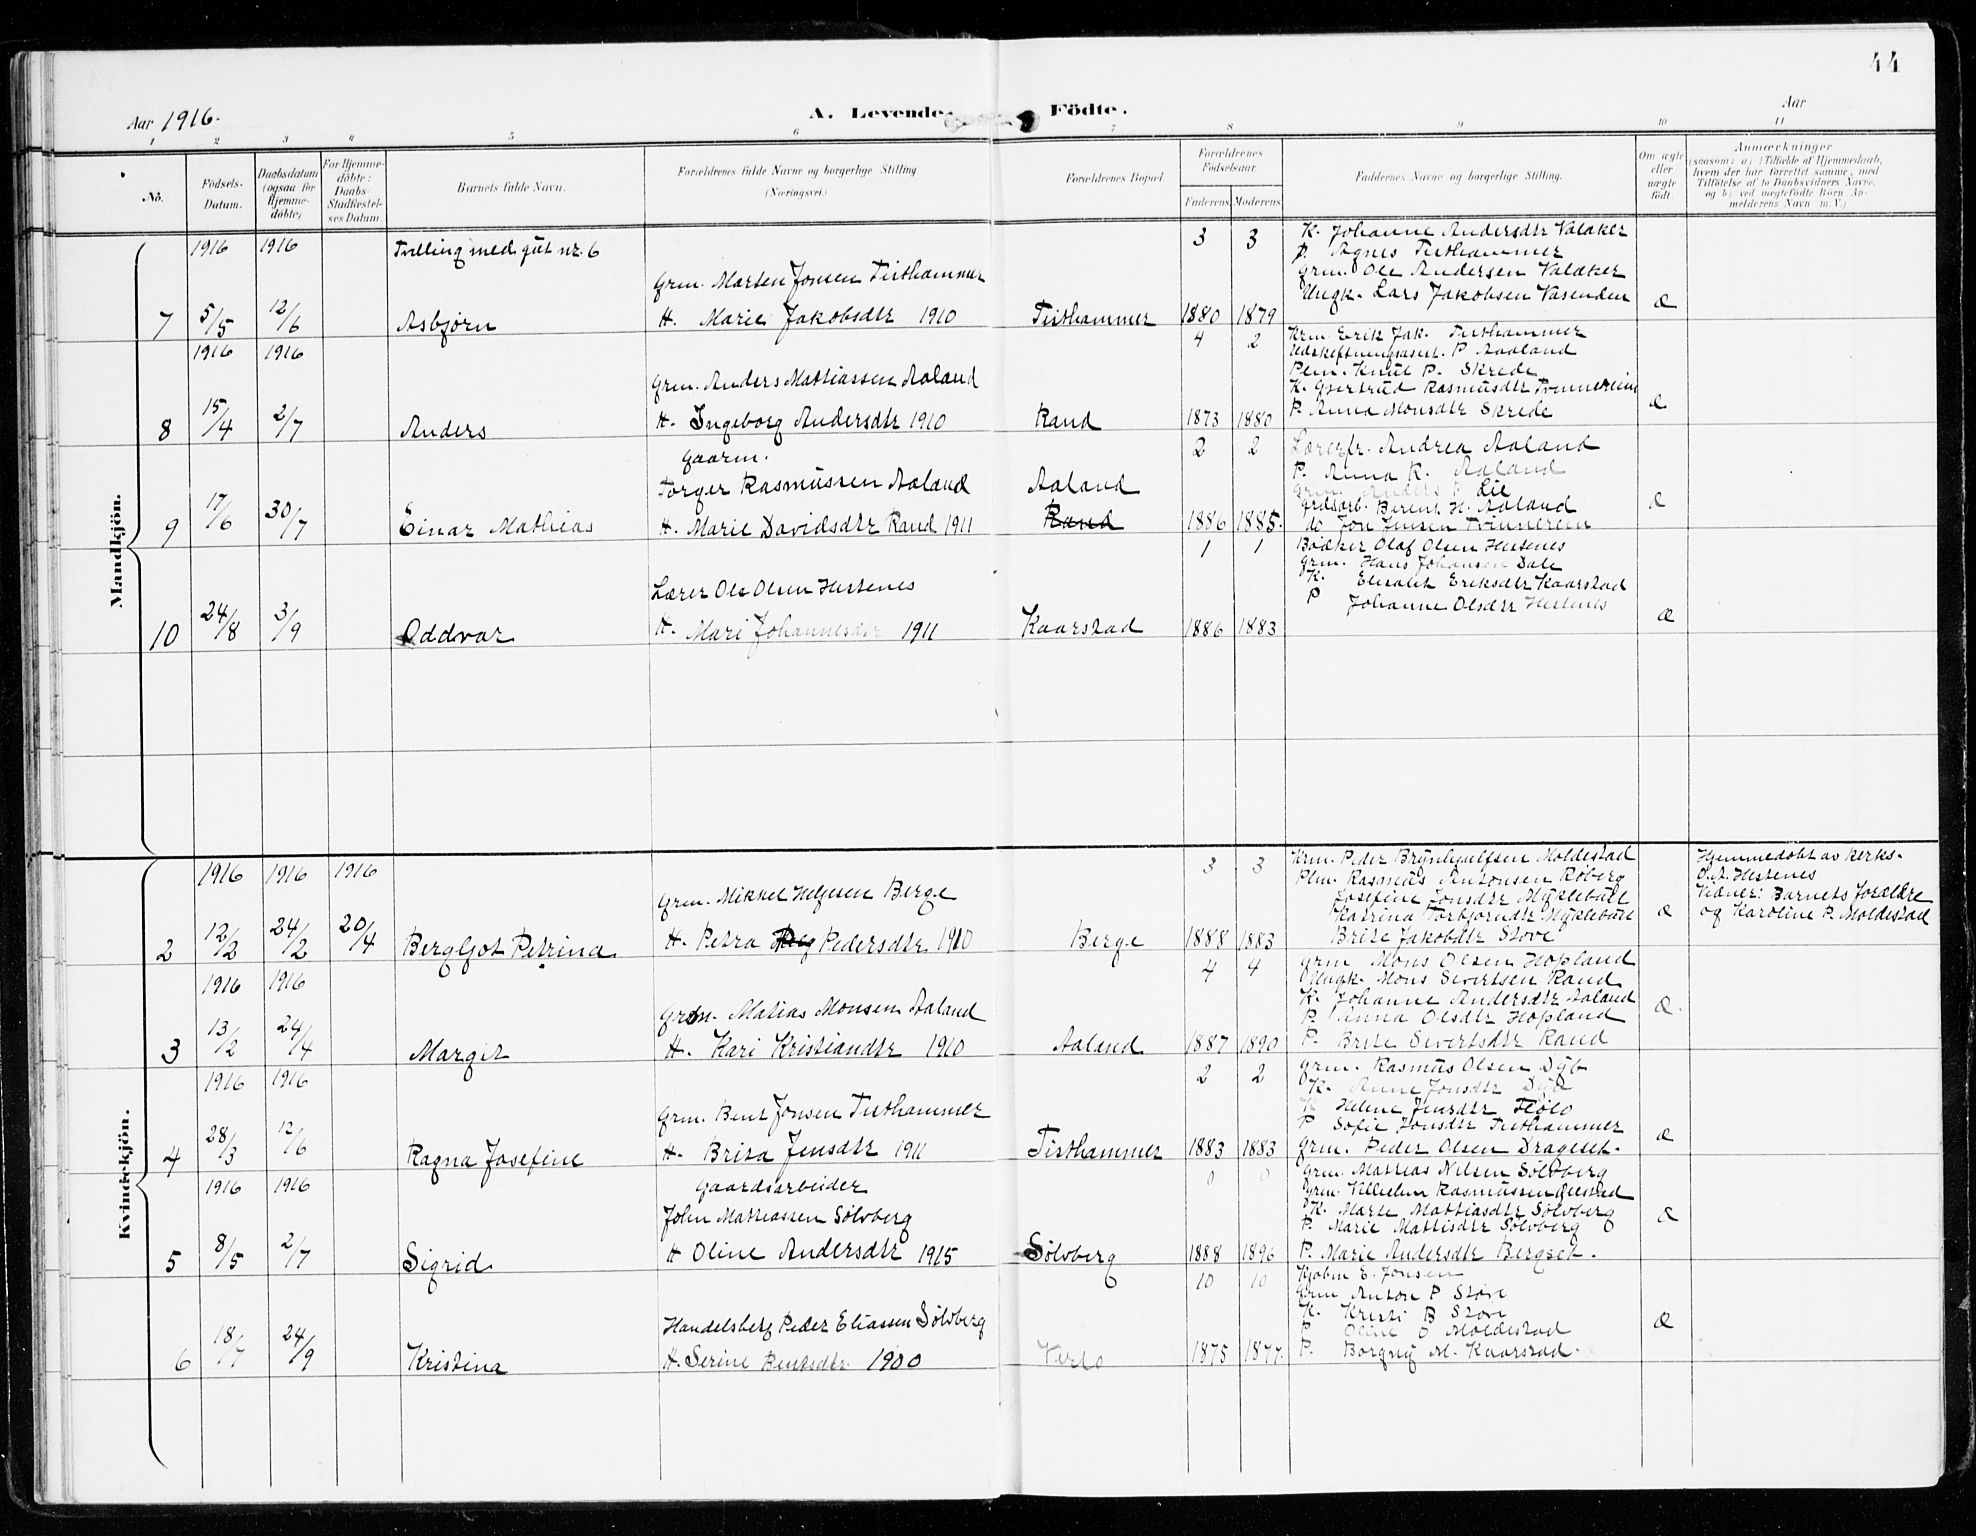 44
Aar 1916.
A. Levende Födte.
Aar
1 2 3 4 5 6 7 8 9 10 11
No.
Födsels-Datum.
Daabsdatum (ogsaa for Hjemme-döbte)
For Hjemme-döbte: Daabs-Stadfæstel-ses Datum.
Barnets fulde Navn.
Forældrenes fulde Navne og borgerlige Stilling (Næringsvei.)
Forældrenes Bopæl
Forældrenes Födselsaar.
Faderens Moderens
Faddernes Navne og borgerlige Stilling.
Om ægte eller uægte födt.
Anmærkninger
(saasom: a) i Tilfælde af Hjemmedaab, hvem der har forrettet samme, med Tilföielse af to Daabsvidners Navne, og b) ved uegtefödte Börn An-melderens Navn m. V.)
Mandkjön.
1916 1916 Tvilling med gut nr. 6 3 3 K. Johanne Andersdtr Valaker
P. Agnes Tisthammer
Grm. Marten Jonsen Tisthammer Grm. Ole Andersen Valaker
Ungk. Lars Jakobsen Vasenden
7 5/5 12/6 Asbjørn H. Marie Jakobsdtr 1910 Tisthammer 1880 1879 Æ
1916 1916 4 2 Krm Eirik Jak. Tisthammer
P Aaland
Grm. Anders Mattiassen Aaland Plm. Knut P. Skrede
K. Gjertrud Rasmusdtr Tvinnereim
8 15/4 2/7 Anders H. Ingeborg Andersdtr 1910 Rand 1873 1880 P. Anna Monsdtr Skrede Æ
Gaarm. 2 2 Lærerfr. Andrea Aaland
P. Anna R. Aaland
Torger Rasmussen Aaland Aaland Grm. Anders P Lie
Grdsarb. Berent H. Aaland
9 17/6 30/7 Einar Mathias H. Marie Davidsdtr Rand 1911 Rand 1886 1885. do Jon Jensen Tvinnereim Æ
1 1 Bøkker Olaf Olsen Hestenes
Grm. Hans Johansen Dale
Lærer Ole Olsen Hestenes K. Elisabet Eriksdtr Kaarstad
P Johanne Olsdtr Hestenes
10 24/8 3/9 Oddvar H. Mari Johannesdtr 1911 Kaarstad 1886 1883 Æ
Kvindekjön.
1916 1916 1916 3 3 Krm. Peder Brynhjulfsen Moldestad Hjemmedøbt av kerks.
Plm. Rasmus Antonsen Roberg O. A. Hestenes
Grm. Mikkel Helgesen Berge Josefine Jonsdtr Myklebutt Vidner: Barnets forældre
Katrina Torbjørndtr Myklebutt og Karoline P. Moldestad
2 12/2 24/2 20/4 Bergljot Petrina H. Petra Pedersdtr 1910 Berge 1888 1883 Brite Jakobdtr Støve Æ
1916 1916 4 4 Grm Mons Olsen Hopland
Ungk. Mons Sivertsen Rand
Grm. Matias Monsen Aaland K. Johanne Andersdtr Aaland
P. Anna Olsdtr Hopland
3 13/2 24/4 Margit H. Kari Kristiandtr 1910 Aaland 1887 1890 P. Brite Sivertsdtr Rand Æ.
1916 1916 2 2 Grm. Rasmus Olsen Dyb
K. Anne Jonsdtr Dyb
Grm. Bent Jonsen Tisthammer K Heline Jensdtr Fløto
P Sofie Jonsdtr Tisthammer
4 28/3 12/6 Ragna Josefine H. Brita Jensdtr 1911 Tisthammer 1883 1883 Grm. Peder Olsen Drageset. Æ
1916 1916 Gaardsarbeider 0 0 Grm. Mattias Nilsen Sölvberg
Grm. Vilhelm Rasmussen
John Mattiassen Sölvberg K. Marte Mattiasdtr Sölvberg
P. Marie Mattisdtr Sölvberg
5 8/5 2/7 Sigrid H Oline Andersdtr 1915 Sölvberg 1888 1896 P. Marie Andersdtr Bergset. Æ
10 10 Kjøbm E. Jonsen
Grm Anton P Støve
Handelsberg Peder Eliassen Sölvberg K. Kristi B Støve
P Oline O Moldestad
6 18/7 24/9 Kristina H. Serine Bentsdtr. 1900 Verlo 1875 1877. P. Borgny M. Kaarstad. Æ